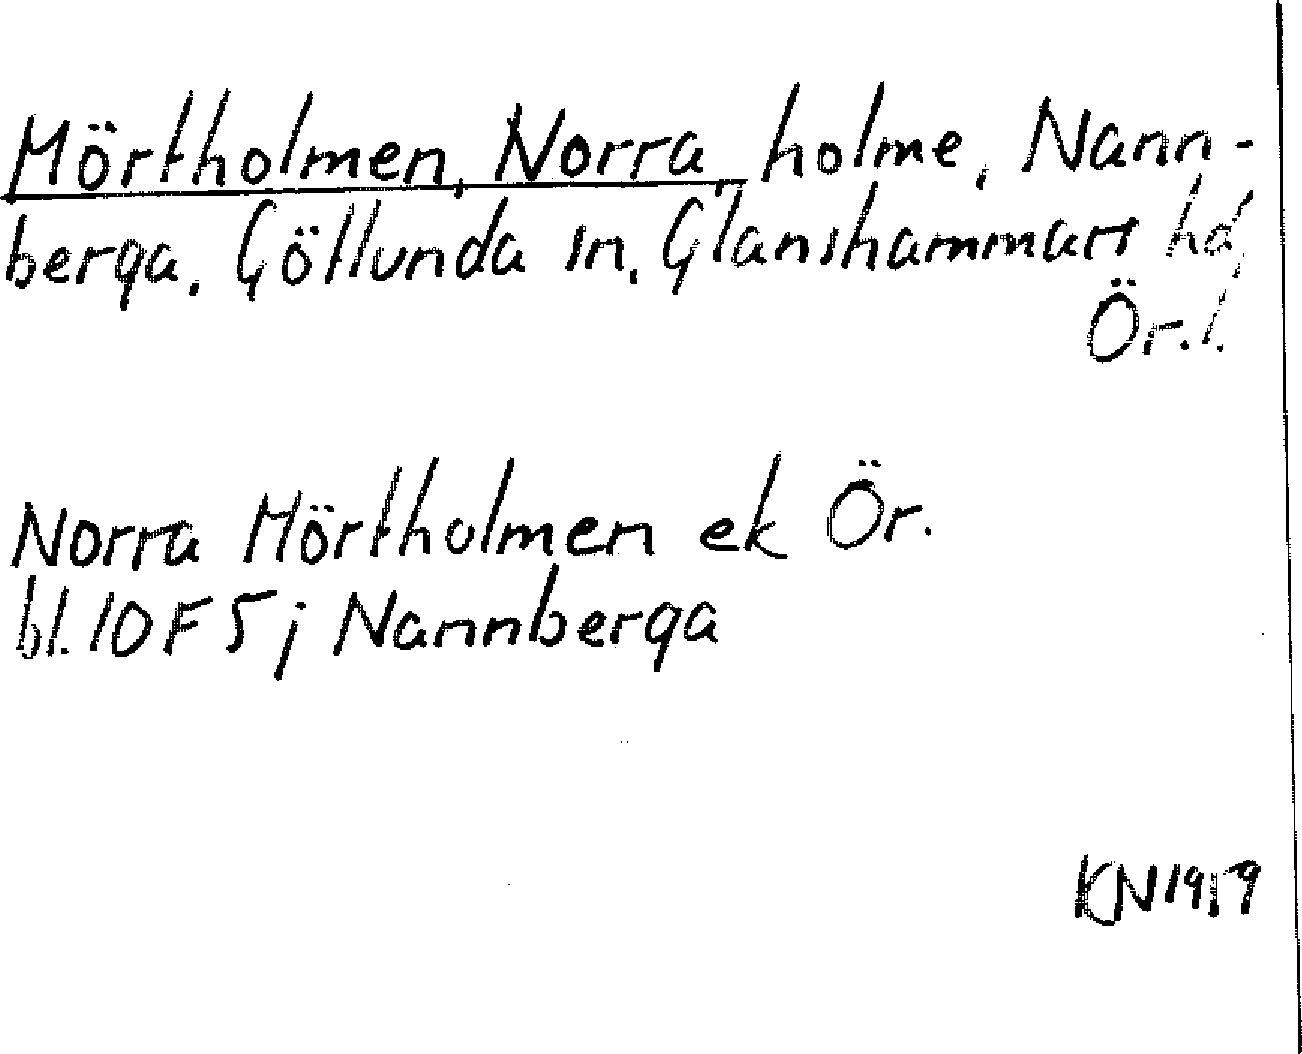 Mörtholmen, Norra, holme, Nann-
berga, Götlunda sn, Glanshammars hd,
Ör. l.
Norra Mörtholmen ek Ör.
bl. 10F 5j Nannberga
KN